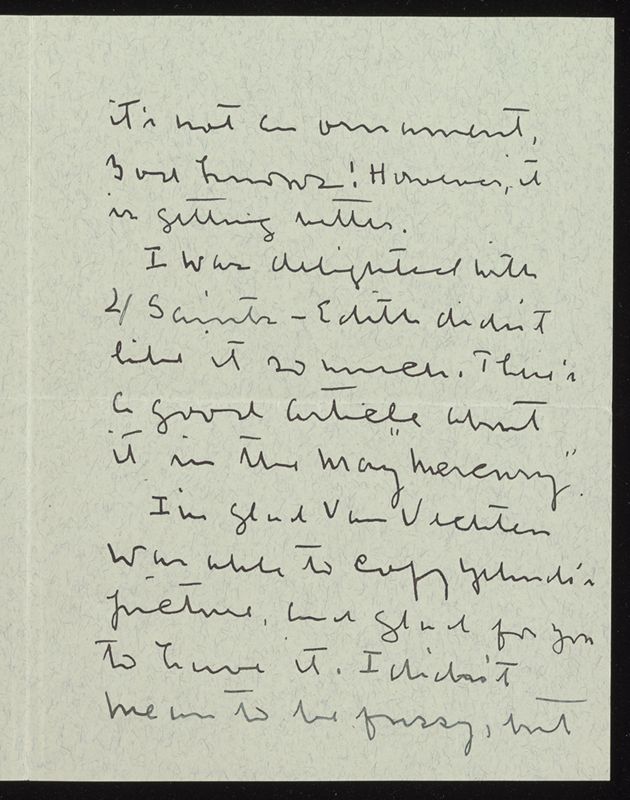 it's not an ornament,
God knows! However, it
is getting better.
I was delighted with
4 Saints – Edith didn't
like it so much. There's
a good article about
it in the May "Mercury".
I'm glad Van Vechten
was able to copy
picture, and glad for you
to have it. I didn't
mean to be fussy, but